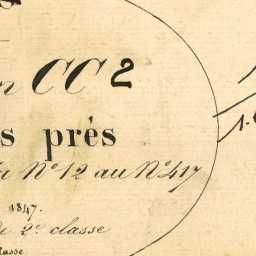 CC 2
s prés
N° 12 au N° 417
1847.
de 2e classe
classe